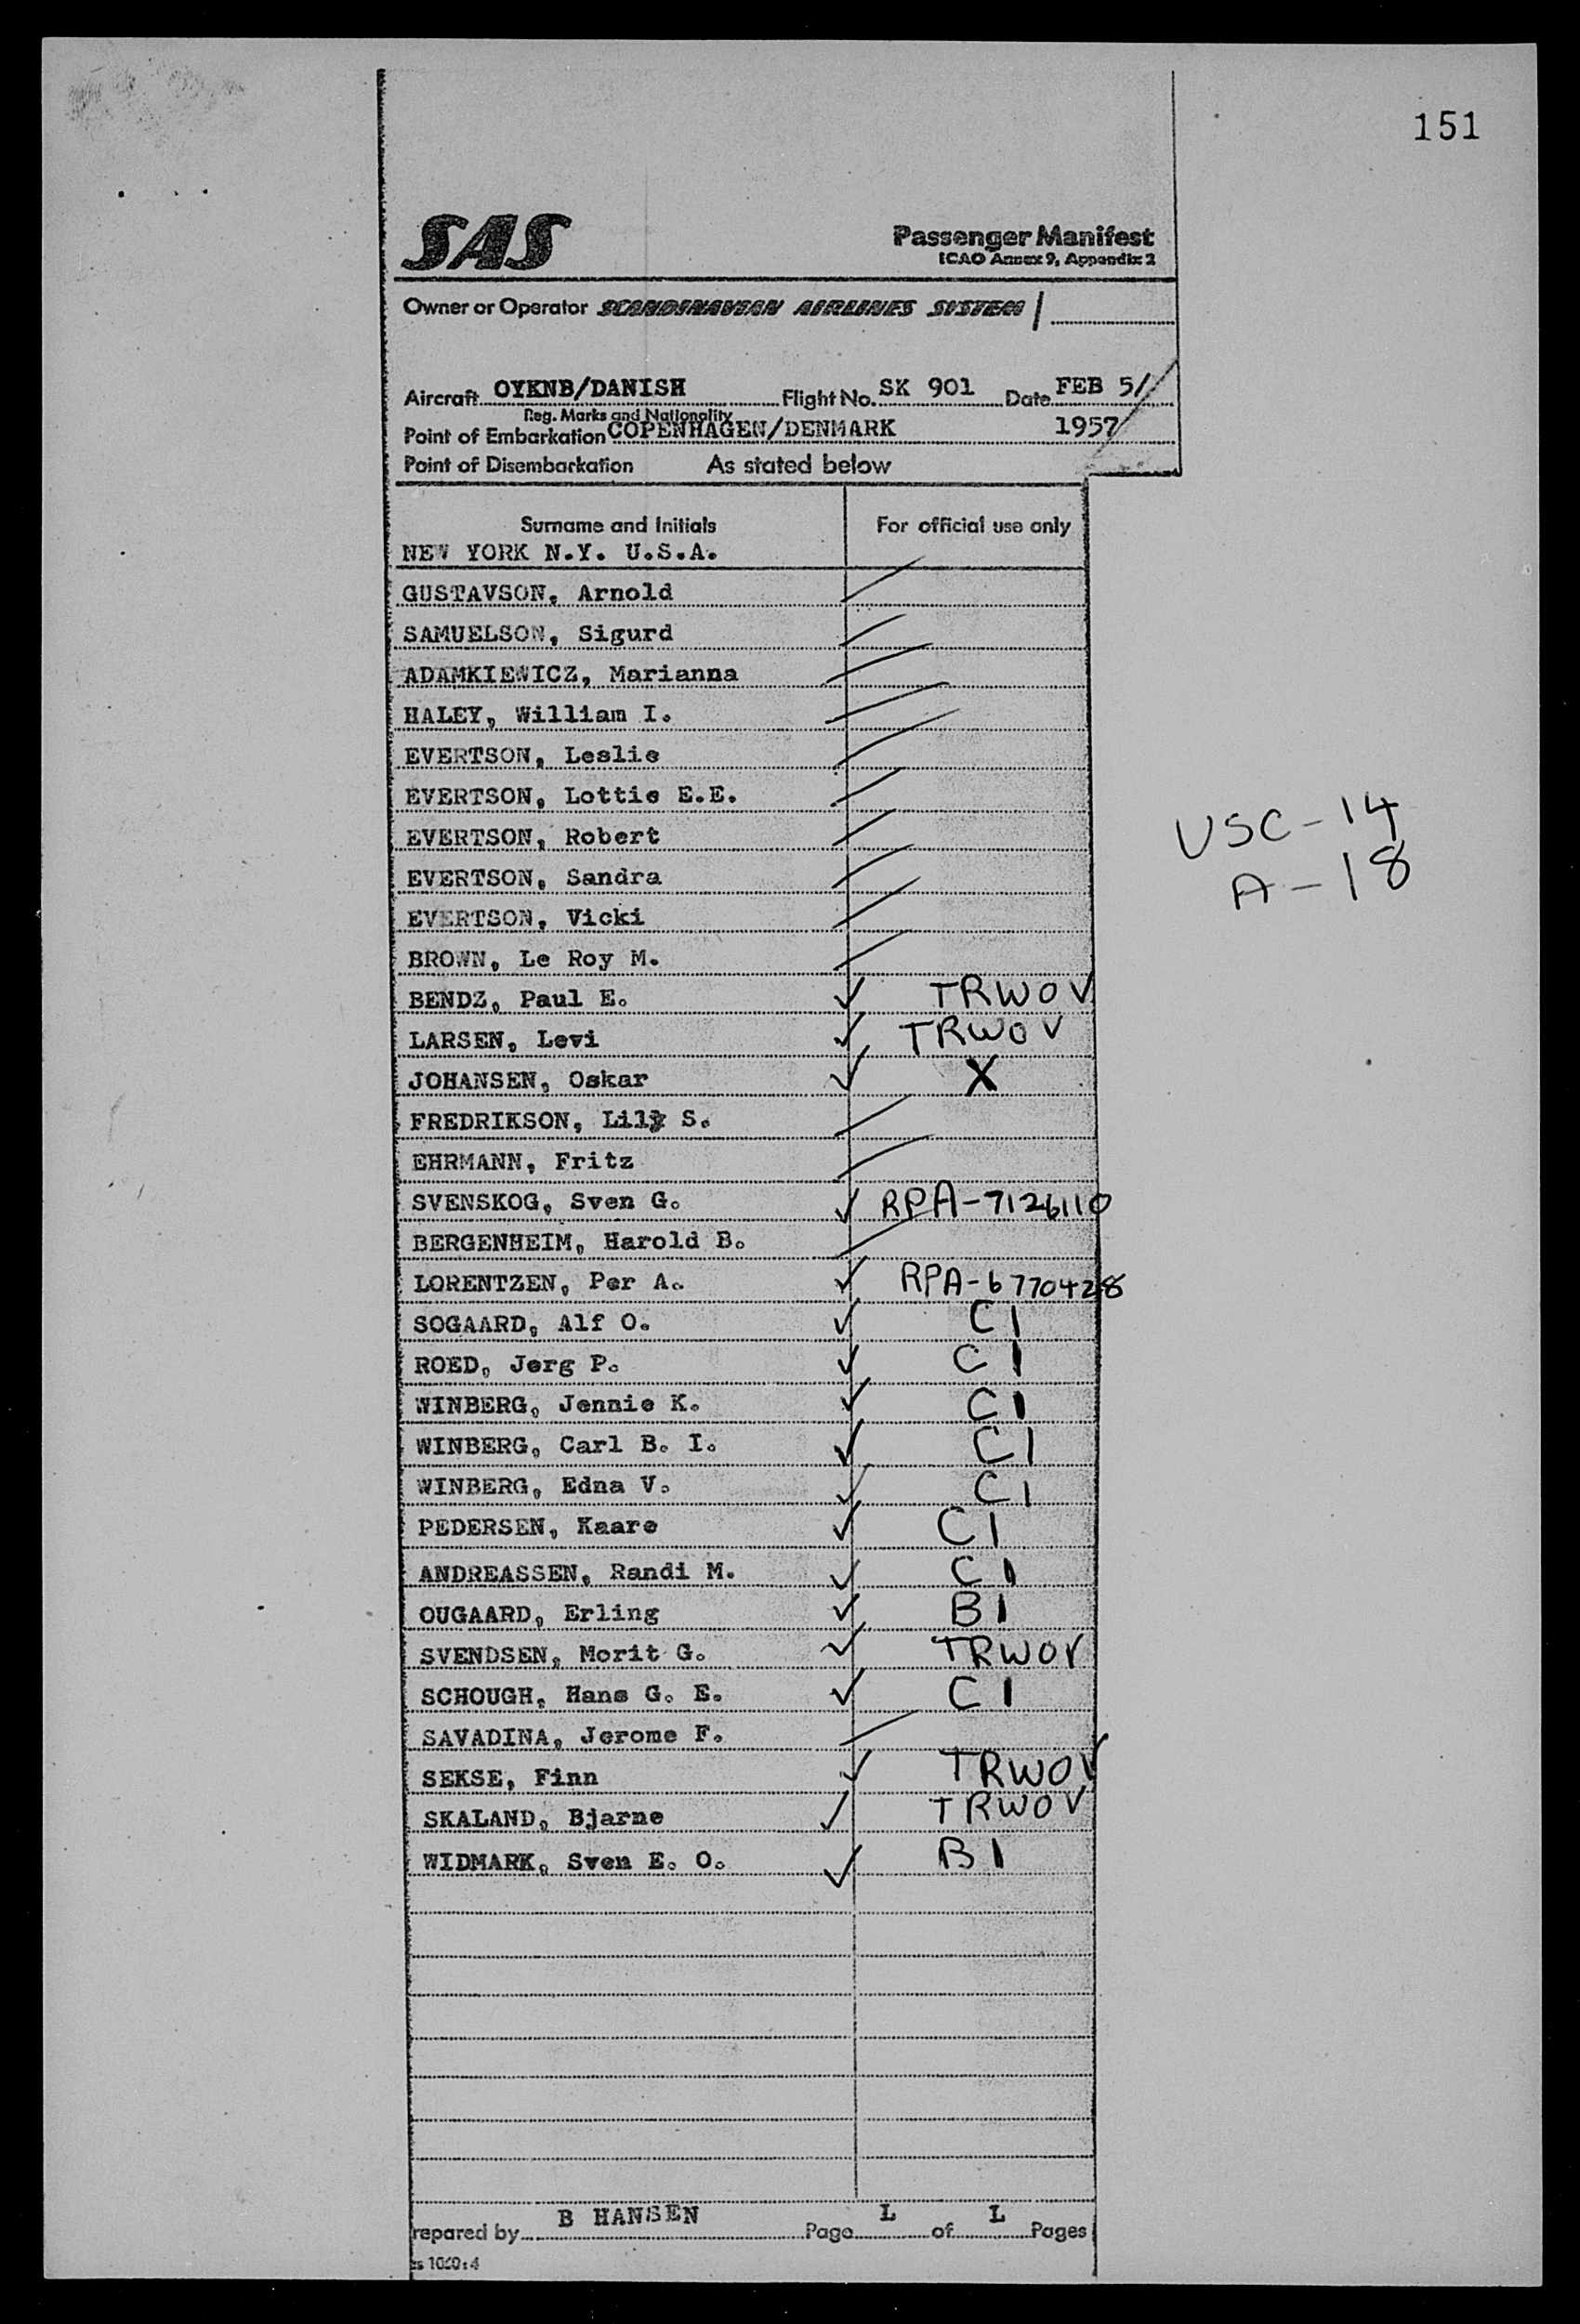 151
SAS
Passenger Manifest
ICAO Annex 9, Appendix 2
Owner or Operator SCANDINAVIAN AIRLINES SYSTEM /
Aircraft OYKNB/DANISH Flight No. SK 901 Date FEB 5/
Reg. Marks and Nationality
Point of Embarkation COPENHAGEN/DENMARK 1957
Point of Disembarkation As stated below
Surname and Initials For official use only
NEW YORK N.Y. U.S.A.
GUSTAVSON, Arnold
SAMUELSON, Sigurd
ADAMKIEWICZ, Marianna
HALEY, William I.
EVERTSON, Leslie
EVERTSON, Lottie E.E.
EVERTSON, Robert
EVERTSON, Sandra
EVERTSON, Vicki
USC - 14
A - 18
BROWN, Le Roy M.
BENDZ, Paul E. ✓ TRWOV
LARSEN, Levi ✓ TRWOV
JOHANSEN, Oskar ✓ X
FREDRIKSON, Lily S.
EHRMANN, Fritz
SVENSKOG, Sven G. ✓ RPA-7126110
BERGENHEIM, Harold B.
LORENTZEN, Per A. ✓ RPA-6770428
SOGAARD, Alf O. ✓ C1
ROED, Jerg P. ✓ C1
WINBERG, Jennie K. ✓ C1
WINBERG, Carl B. I. ✓ C1
WINBERG, Edna V. ✓ C1
PEDERSEN, Kaare ✓ C1
ANDREASSEN, Randi M. ✓ C1
OUGAARD, Erling ✓ B1
SVENDSEN, Morit G. ✓ TRWOV
SCHOUGH, Hans G. E. ✓ C1
SAVADINA, Jerome F.
SEKSE, Finn ✓ TRWOV
SKALAND, Bjarne ✓ TRWOV
WIDMARK, Sven E. O. ✓ B1
repared by B HANSEN Page L of L Pages
s 1060:4